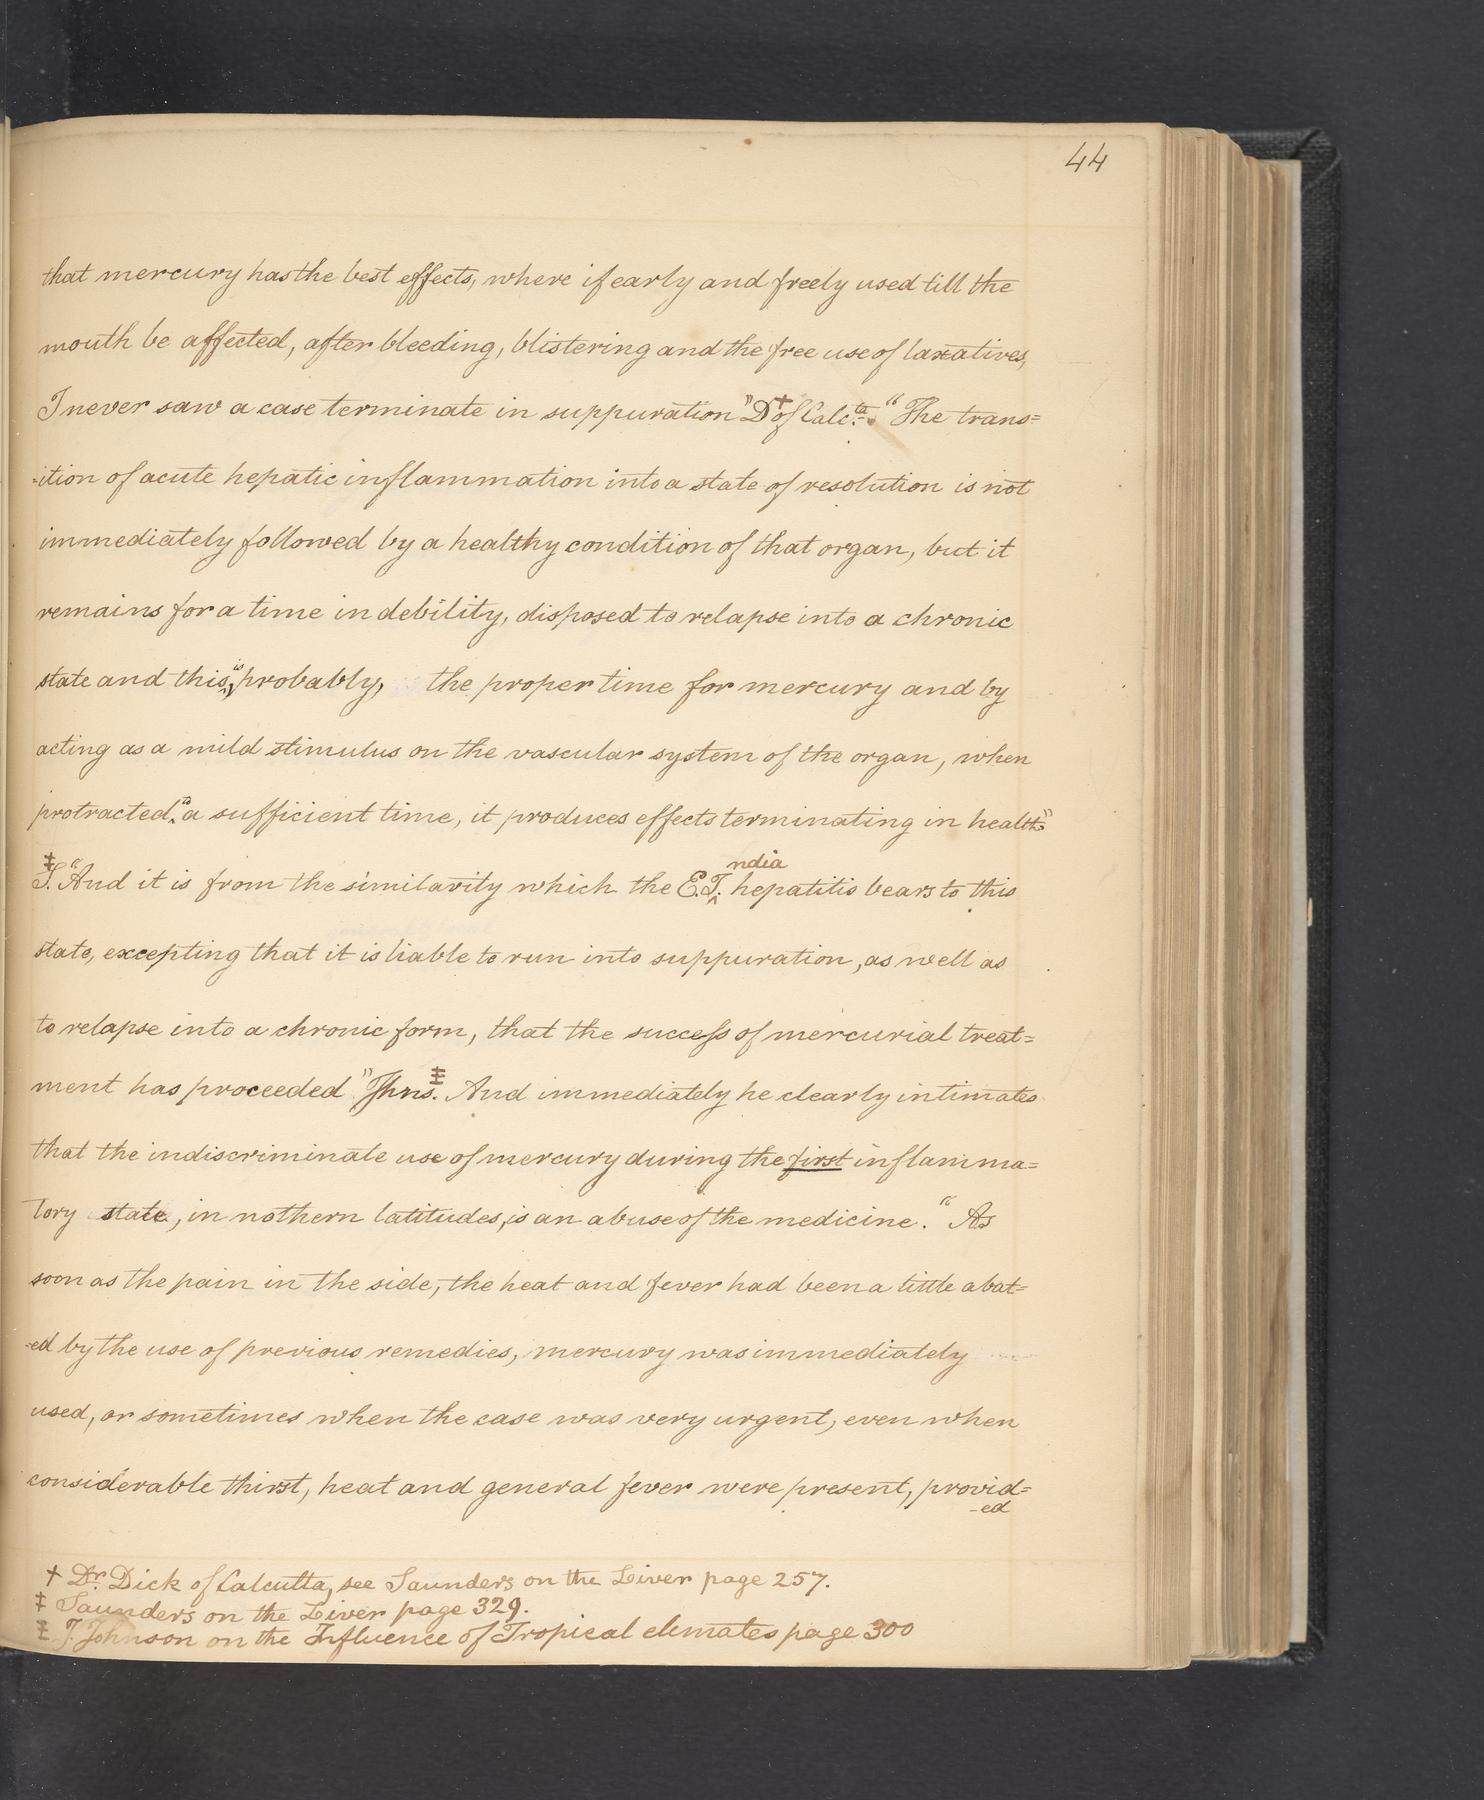 44
that mercury has the best effects, where if early and freely used till the
mouth be affected, after bleeding, blistering and the free use of laxatives,
I never saw a case terminate in suppuration" D† of Calc.ta. "The trans=
=ition of acute hepatic inflammation into a state of resolution is not
immediately followed by a healthy condition of that organ, but it
remains for a time in debility, disposed to relapse into a chronic
state and this, is probably, the proper time for mercury and by
acting as a mild stimulus on the vascular system of the organ, when
protracted to a sufficient time, it produces effects terminating in health"
‡S. "And it is from the similarity which the E.I.ndia hepatitis bears to this
state, excepting that it is liable to run into suppuration, as well as
to relapse into a chronic form, that the success of mercurial treat=
ment has proceeded "Jhns. And immediately he clearly intimates
that the indiscriminate use of mercury during the first inflamma=
tory state, in nothern latitudes, is an abuse of the medicine. "As
soon as the pain in the side, the heat and fever had been a little abat=
-ed by the use of previous remedies, mercury was immediately
used, or sometimes when the case was very urgent, even when
considerable thirst, heat and general fever were present, provid=
-ed
† Dr. Dick of Calcutta, see Saunders on the Liver page 257.
‡ Saunders on the Liver page 329.
J. Johnson on the Influence of Tropical climates page 300